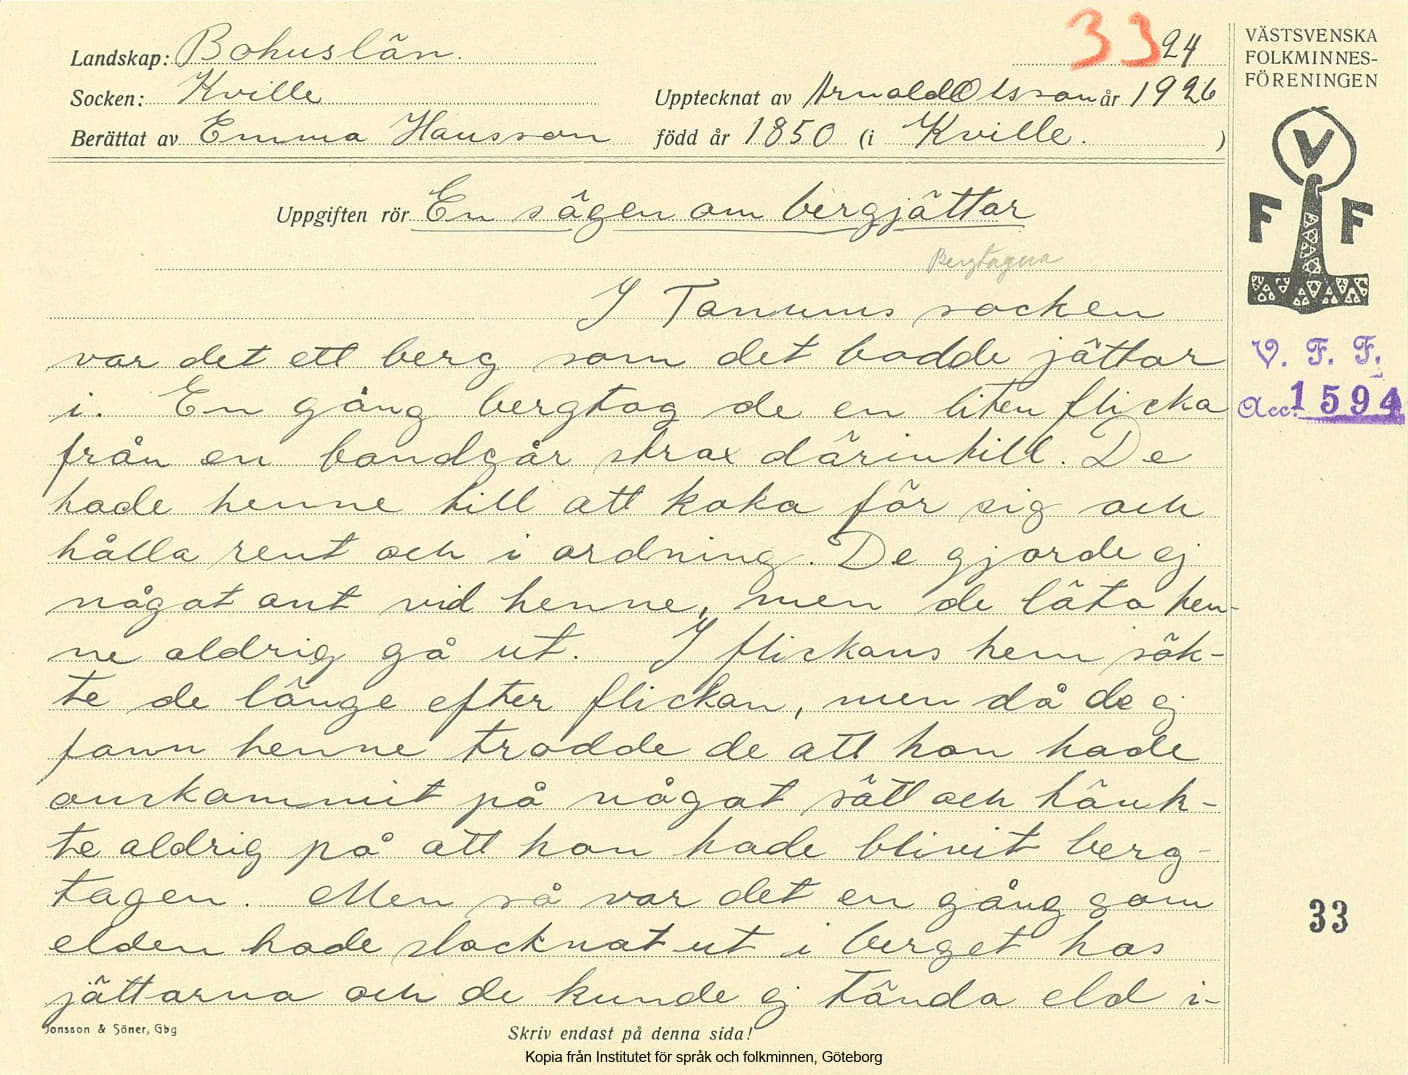 Landskap: Bohuslän.
33 24
Socken: Kville
Upptecknat av Arnold Olsson år 1926
Berättat av Emma Hansson
född år 1850 (i Kville. )
VÄSTSVENSKA
FOLKMINNES-
FÖRENINGEN
V
F F
V. F. F.
Acc. 1594
Uppgiften rör En sägen om bergjättar
Bergtagna
I Tanums socken
var det ett berg som det bodde jättar
i. En gång bergtog de en liten flicka
från en bondgår strax därintill. De
hade henne till att koka för sig och
hålla rent och i ordning. De gjorde ej
något ont vid henne, men de läto hen-
ne aldrig gå ut. I flickans hem sök-
te de länge efter flickan, men då de ej
fann henne trodde de att hon hade
omkommit på något sätt och tänk-
te aldrig på att hon hade blivit berg-
tagen. Men så var det en gång som
elden hade slocknat ut i berget hos
jättarna och de kunde ej tända eld i-
33
Jonsson & Söner, Gbg
Skriv endast på denna sida!
Kopia från Institutet för språk och folkminnen, Göteborg